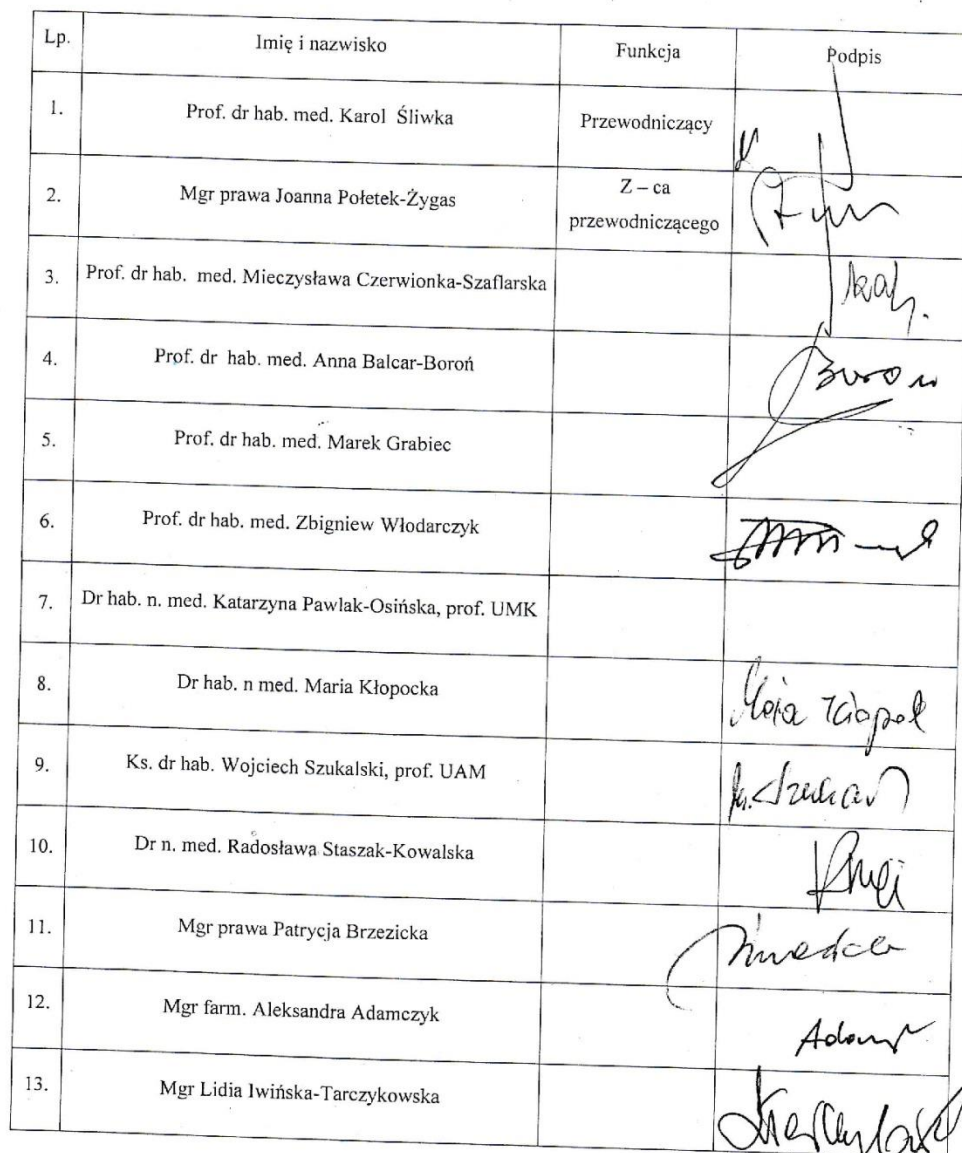 Lp. Imię i nazwisko Funkcja Podpis
1. Prof. dr hab. med. Karol Śliwka Przewodniczący
2. Mgr prawa Joanna Połetek-Żygas Z – ca
przewodniczącego
3. Prof. dr hab. med. Mieczysława Czerwionka-Szaflarska
4. Prof. dr hab. med. Anna Balcar-Boroń Boroń
5. Prof. dr hab. med. Marek Grabiec
6. Prof. dr hab. med. Zbigniew Włodarczyk
7. Dr hab. n. med. Katarzyna Pawlak-Osińska, prof. UMK
8. Dr hab. n med. Maria Kłopocka
9. Ks. dr hab. Wojciech Szukalski, prof. UAM
10. Dr n. med. Radosława Staszak-Kowalska
11. Mgr prawa Patrycja Brzezicka
12. Mgr farm. Aleksandra Adamczyk
13. Mgr Lidia Iwińska-Tarczykowska